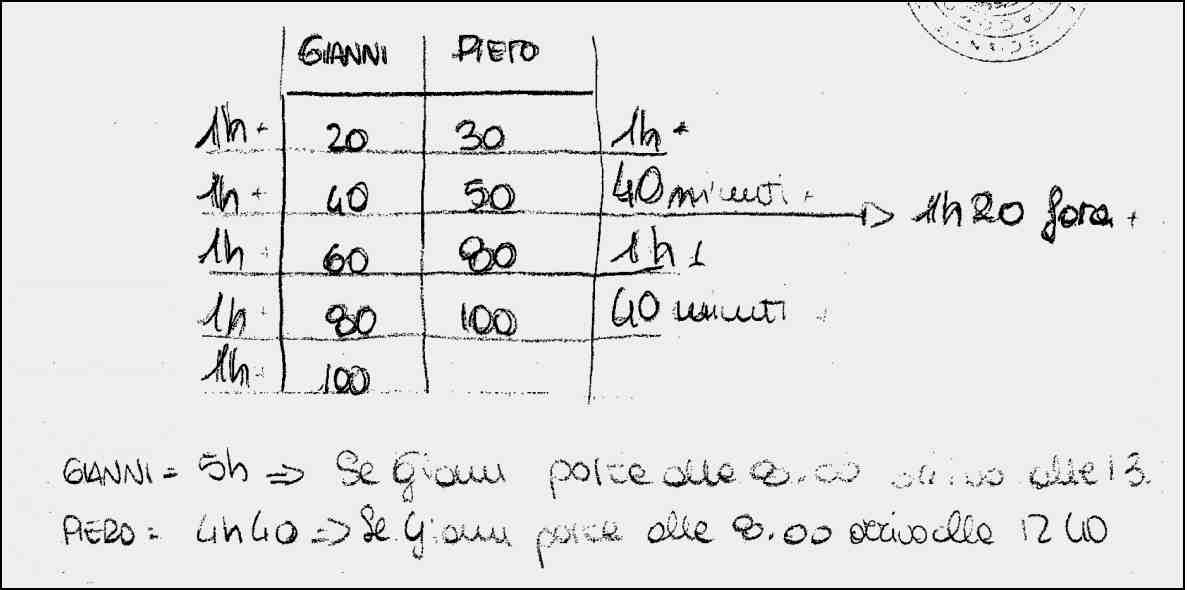 GIANNI PIERO
1h 20 30 1h
1h 40 50 40 minuti
1h 60 80 1h 1h20 fora
1h 80 100 40 minuti
1h 100
GIANNI = 5h => Se Gianni parte alle 8.00 arriva alle 13.
PIERO = 4h40 => Se Gianni parte alle 8.00 arriva alle 12 40